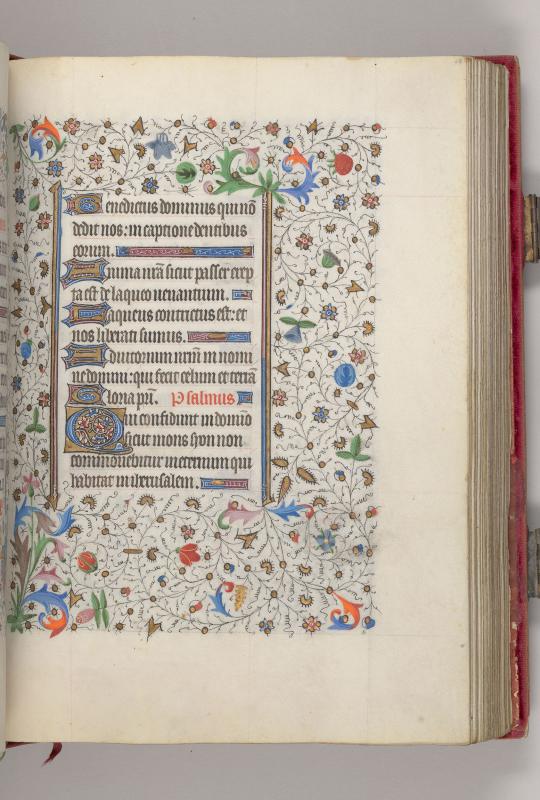 Benedictus dominus qui nō
dedit nos: in captione dentibus
eorum.
Anima nrā sicut passer erep
ta est de laqueo uenantium.
Laqueus contritus est: et
nos liberati sumus.
Adiutorium nrm̄ in nomi
ne domini: qui fecit celum et terā
Gloria pri̅. Psalmus
Qui confidunt in domīo
sicut mons syon non
commouebitur in eternum qui
habitat in iherusalem.